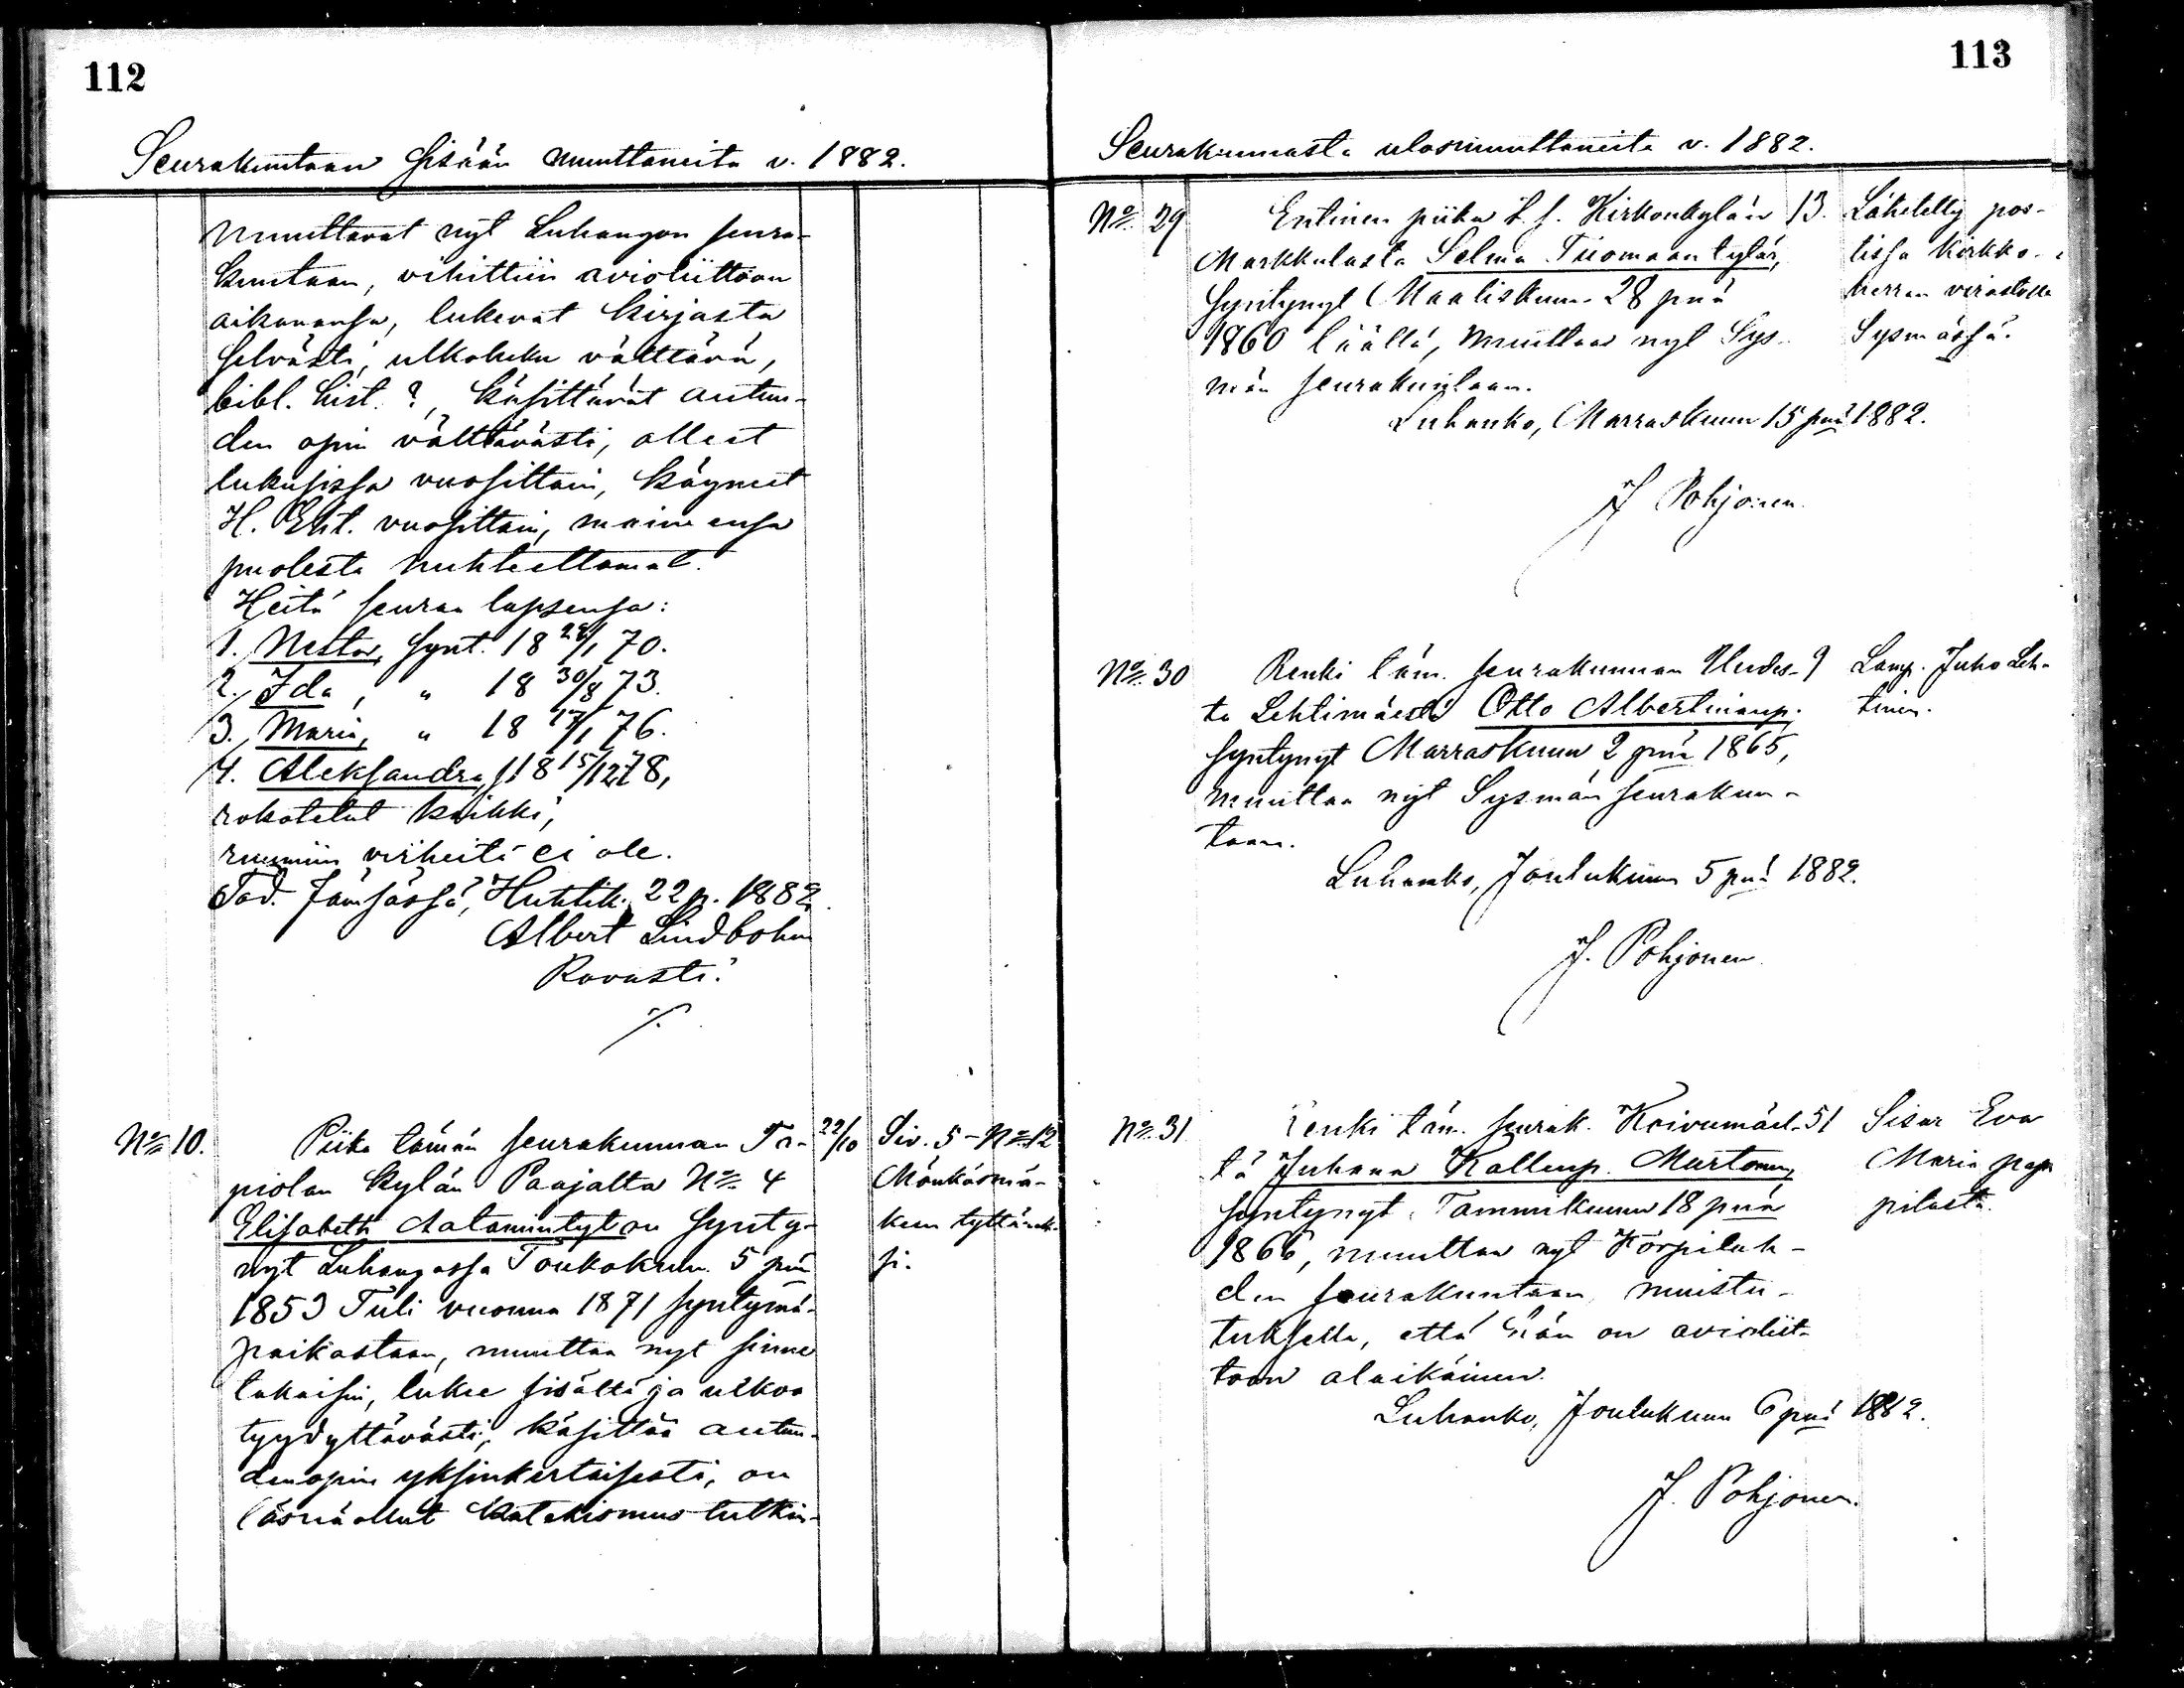 112
Seurakuntaan sisään muuttaneita v. 1882.
muuttavat nyt Luhangon seura-
kuntaan, vihittiin avioliittoon
aikanansa, lukevat kirjasta
selvästi, ulkoluku välttävä,
bibl. hist. ?, käsittävät autuu-
den opin välttävästi, olleet
lukusissa vuosittain, käyneet
H. Eht. vuosittain, maineensa
puolesta nuhteettomat.
Heitä seuraa lapsensa:
1. Nestor, synt. 18 28/1 70.
2. Ida, " 18 30/8 73.
3. Maria, " 18 17/1 76.
4. Aleksandra, s 18 15/12 78,
rokotetut kaikki,
ruumiin virheitä ei ole.
Tod. Jämsässä, Huhtik. 22 p. 1882.
Albert Lindbohm
Rovasti.
No 10.
Piika tämän seurakunnan Ta-
piolan kylän Paajalta No 4
Elisabeth Aatamintyt on synty-
nyt Luhangassa Toukokuun 5 pnä
1853 Tuli vuonna 1871 syntymä-
paikastaan, muuttaa nyt sinne
takaisin, lukee sisältä ja ulkoa
tyydyttävästi, käsittää autuu-
denopin yksinkertaisesti, on
läsnäollut katekismus-tutkin-
22/10
Siv. 5 - No 12
Mönkäsmä-
keen tyttärek-
si.
113
Seurakunnasta ulosmuuttaneita v. 1882.
No 29
Entinen piika t. s. Kirkonkylän
Markkulasta Selma Tuomaantytär,
syntynyt Maaliskuun 28 pnä
1860 täällä, muuttaa nyt Sys-
män seurakuntaan.
Luhanko, Marraskuun 15 pnä 1882.
J Pohjonen.
13.
Lähetetty pos-
tissa Kirkko-
herran virastolle
Sysmässä.
No 30
Renki täm. seurakunnan Uudes-
ta Lehtimäestä Otto Albertinanp.
syntynyt Marraskuun 2 pnä 1865,
muuttaa nyt Sysmän seurakun-
taan.
Luhanko, Joulukuun 5 pnä 1882.
J. Pohjonen
9
Lamp. Juho Leh-
tinen.
No 31
Renki täm. seurak. Koivumäes-
tä Juhana Kallenp. Murtonen,
syntynyt Tammikuun 18 pnä
1866, muuttaa nyt Korpilah-
den seurakuntaan, muistu-
tuksella, että hän on avioliit-
toon alaikäinen.
Luhanko, Joulukuun 6 pnä 1882.
J. Pohjonen.
51
Sisar Eva
Maria pap-
pilasta.